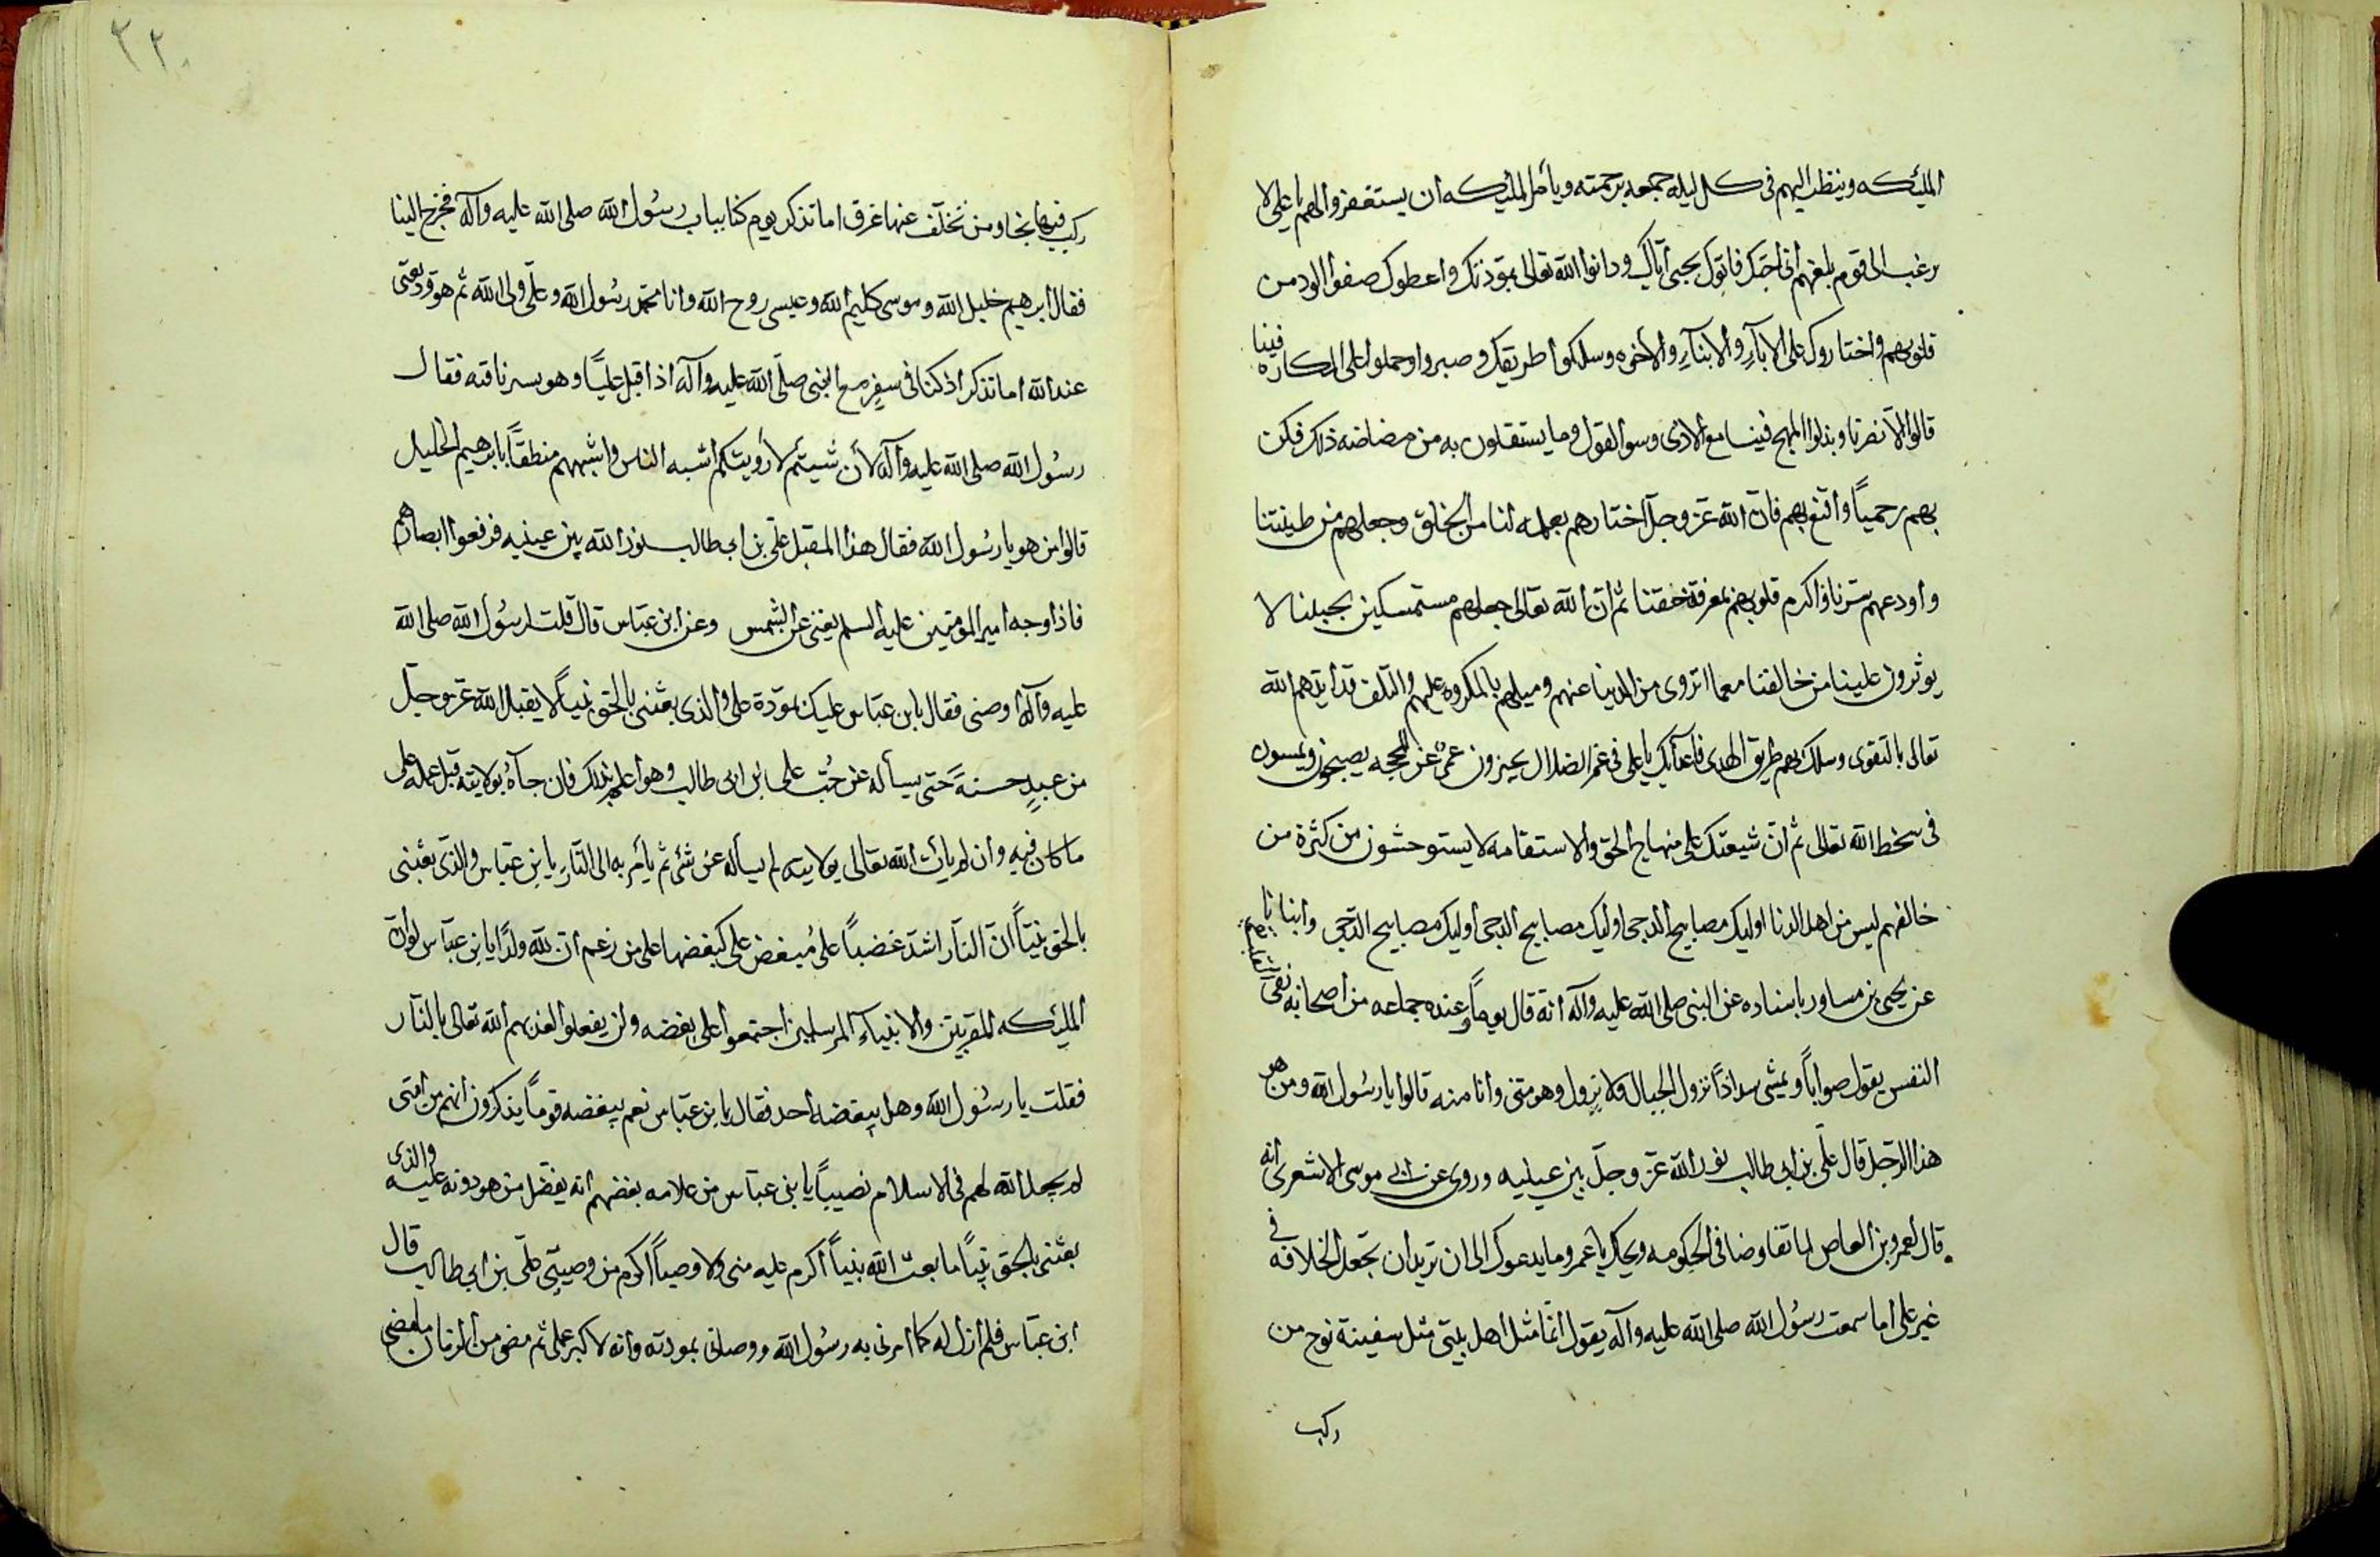 الملئكه وينظر اليهم فى كل ليلة جمعه برحمته ويأمر الملئكه ان يستغفروا لهم يا على لا
ترغب الى قوم بلغهم انى احبك فاتوك بحبى اياك ودانوا الله تعالى بمودتك واعطوك صفوا الود من
قلوبهم واختاروك على الابآء والابنآء والاخوه وسلكوا طريقك وصبروا وحملوا على المكاره فينا
قالوا الا نصرنا وبذلوا المهج فينا مع الاذى وسوا القول وما يستقلون به من مضاضه ذلك فكن
بهم رحمياً واقنع بهم فان الله عز وجل اختارهم بعلمه لنا من الخلق وجعلهم من طينتنا
واودعهم سرنا والزم قلوبهم معرفة حقنا ثم ان الله تعالى جعلهم مستمسكين بحبلنا لا
يوثرون علينا من خالفنا مع ما تزوى من الدنيا عنهم وميلهم بالمكروه عليهم والتلف قد ايدهم الله
تعالى بالتقوى وسلك بهم طريق الهدى فاعدآئك يا على فى غم الضلال يحيرون عمى عن المحجه يصبحون ويمسون
فى سخط الله تعالى ثم ان شيعتك على منهاج الحق والاستقامه لا يستوحشون من كثرة من
خالفهم ليس من اهل الدنا اوليك مصابيح الدجى اوليك مصابيح الدجى اوليك مصابيح الدجى وابنانا
عن يحيى بن مساور باسناده عن النبى صلى الله عليه وآله انه قال يوماً وعنده جماعه من اصحابه نقى
النفس يقول صواباً ويمشى سداداً تزول الجبال ولا يزول وهو منى وانا منه قالوا يا رسول الله ومن هو
هذا الرجل قال على بن ابى طالب نور الله عز وجل بين عينيه وروى عن ابى موسى الاشعرى انه
قال لعمرو بن العاص لما تفاوضا فى الحكومه ويحك يا عمرو ما يدعوك الى ان تريد ان تجعل الخلافه فى
غير على اما سمعت رسول الله صلى الله عليه وآله يقول انما مثل اهل بيتى مثل سفينة نوح من
ركب
٢٢٠
ركب فيها نجا ومن تخلف عنها غرق اما تذكر يوم كنا بباب رسول الله صلى الله عليه وآله فخرج الينا
فقال ابرهيم خليل الله وموسى كليم الله وعيسى روح الله وانا محمد رسول الله وعلى ولى الله ثم هو وديعتى
عند الله اما تذكر اذ كنا فى سفر مع النبى صلى الله عليه وآله اذ اقبل علياً وهو يسير ناقته فقال
رسول الله صلى الله عليه وآله لأن شيتم لأرويتكم اشبه الناس واشبههم منطقاً بابرهيم الخليل
قالوا من هو يا رسول الله فقال هذا المقبل على بن ابى طالب نور الله بين عينيه فرفعوا ابصارهم
فاذا وجه امير المومنين عليه السلم يغنى عن الشمس وعن ابن عباس قال قلت لرسول الله صلى الله
عليه وآله اوصنى فقال يا بن عباس عليك بمودة على والذى بعثنى بالحق نبياً لا يقبل الله عز وجل
من عبدٍ حسنة حتى يسأله عن حب على ابن ابى طالب وهو اعلم بذلك فان جآءه بولايته قبل عمله على
ما كان فيه وان لم يأت الله تعالى بولايته لم يسأله عن شئ ثم يأمر به الى النار يا بن عباس والذى بعثنى
بالحق نبياً ان النار اشد غضباً على مبغض على كبغضها على من زعم ان لله ولداً يا بن عباس لو ان
الملئكه المقربين والانبياء المرسلين اجتمعوا على بغضه ولن يفعلوا لعذبهم الله تعالى بالنار
فقلت يا رسول الله وهل يبغضه احد فقال يا بن عباس نعم يبغضه قوماً يذكرون انهم من امتى
لم يجعل الله لهم فى الاسلام نصيباً يا بنى عباس من علامه بغضهم انه يفضل من هو دونه عليه والذى
بعثنى بالحق نبياً ما بعث الله نبياً اكرم عليه منى ولا وصياً اكرم من وصيى على بن ابى طالب قال
ابن عباس فلم ازل له كما امرنى به رسول الله ووصانى بمودته وانه لاكبر عملى ثم مضى من الزمان ما مضى